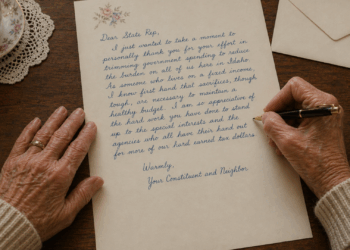 Dear State Rep,
I just wanted to take a moment to
personally thank you for your effort in
trimming government spending to reduce
the burden on all of us here in Idaho.
As someone who lives on a fixed income,
I know first hand that sacrifices, though
tough, are necessary to maintain a
healthy budget. I am so appreciative of
the hard work you have done to stand
up to the special interests and the
agencies who all have their hand out
for more of our hard earned tax dollars.
Warmly,
Your Constituent and Neighbor